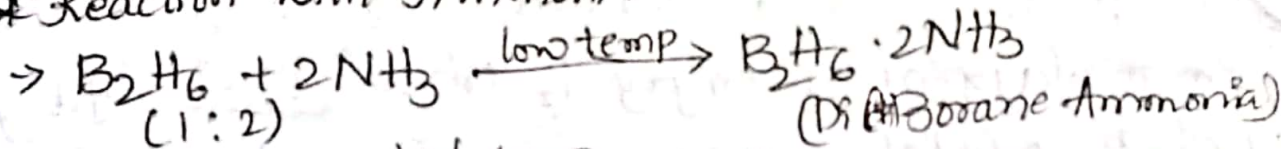 * Reaction with
→ B₂H₆ + 2NH₃ —low temp→ B₂H₆ · 2NH₃
(1 : 2) (Di Borane Ammonia)